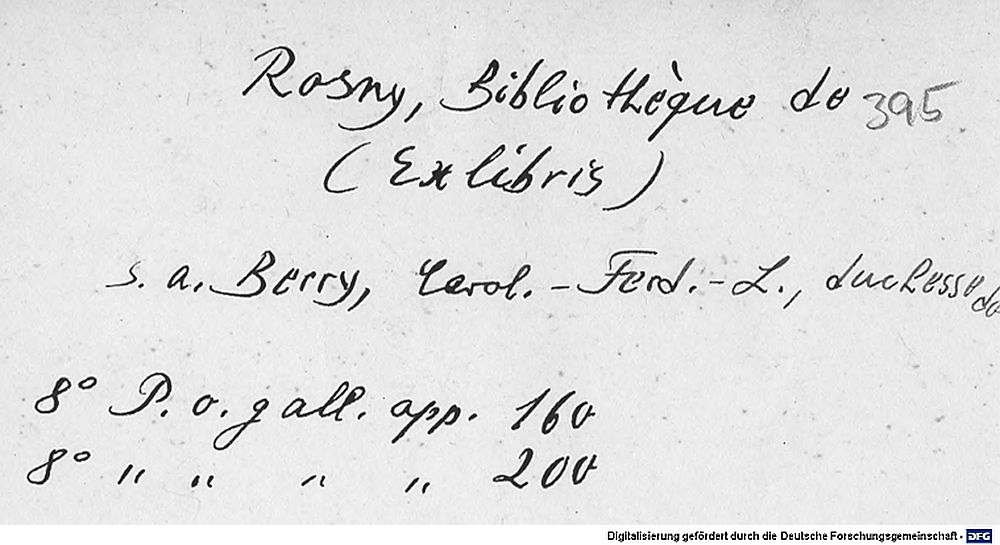 Rosny, Bibliothèque de 395
(Exlibris)
s. a. Berry, Carol.-Ferd.-L., duchesse de
8° P. o. gall. app. 160
8° " " " " 200
Digitalisierung gefördert durch die Deutsche Forschungsgemeinschaft - DFG